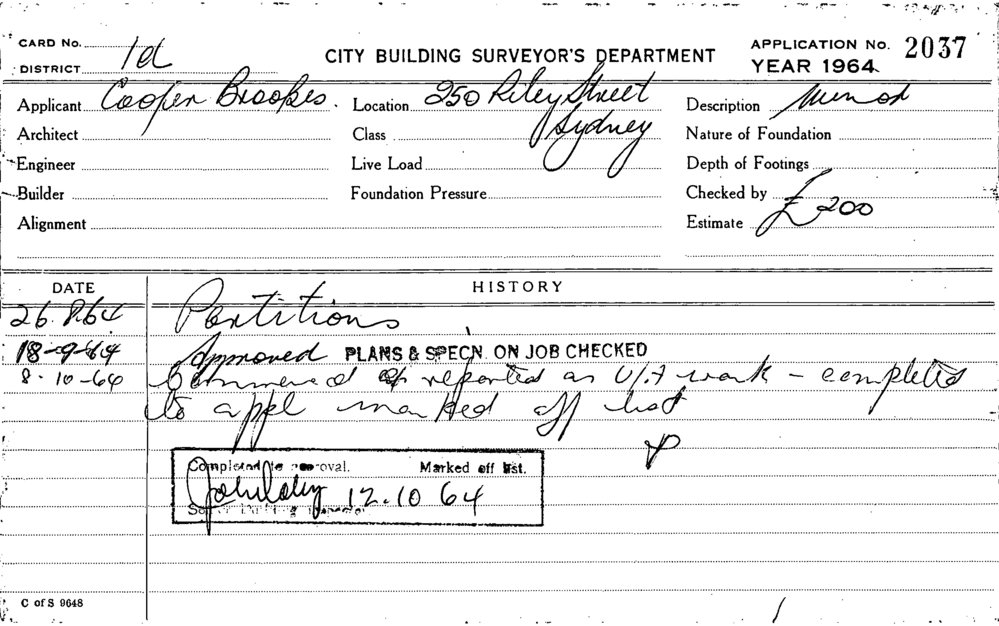 CARD No. 1d
DISTRICT
CITY BUILDING SURVEYOR'S DEPARTMENT
APPLICATION No. 2037
YEAR 1964
Applicant Cooper Brookes. Location 250 Riley Street Description Minor
Architect Class Sydney Nature of Foundation
Engineer Live Load Depth of Footings
Builder Foundation Pressure Checked by
Alignment Estimate £200
DATE HISTORY
26.8.64 Partitions
18-9-64 Approved PLANS & SPECN. ON JOB CHECKED
8-10-64 Commenced as reported as U/A work - completed
to appl marked off list
Completed to approval. Marked off list.
12.10 64
Senior Building Inspector
C of S 9648